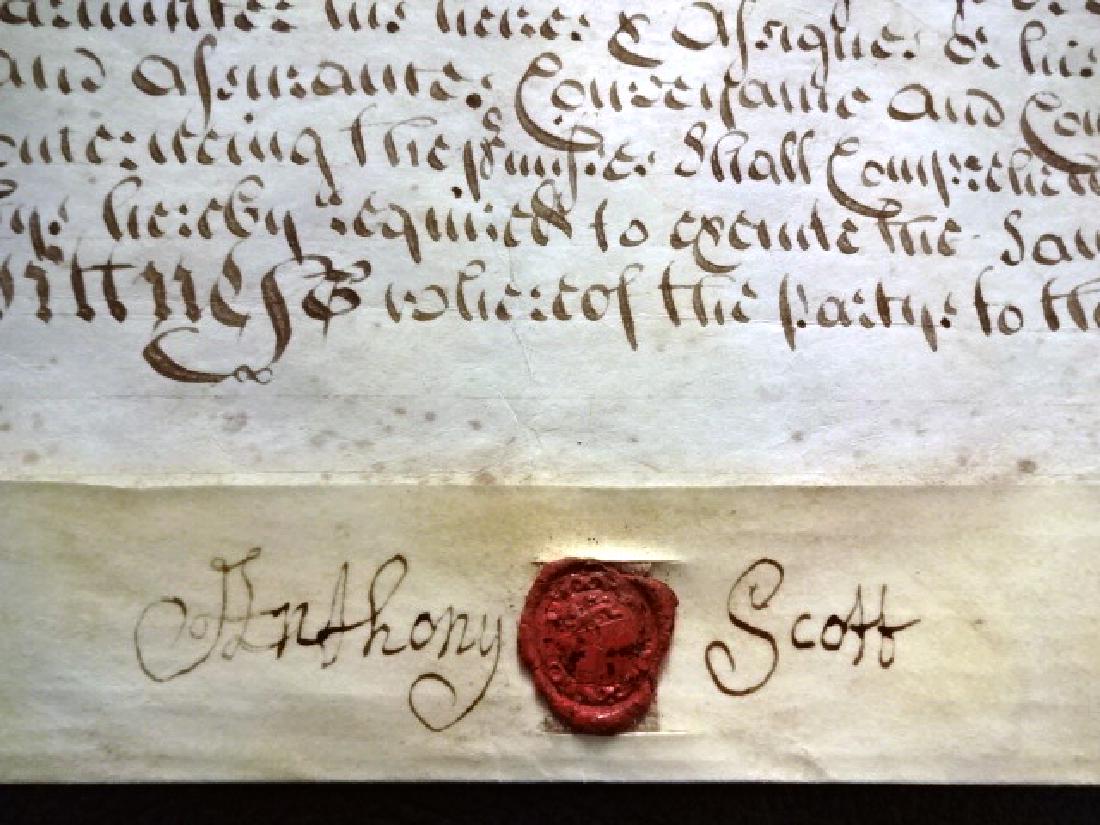 his heires & Assignes or his
and Assurance Conveyance and Con
concerneing the p'misses Shall Comprehend
hereby required to execute the Sam
Wittnesse whereof the partyes to th
Anthony Scott